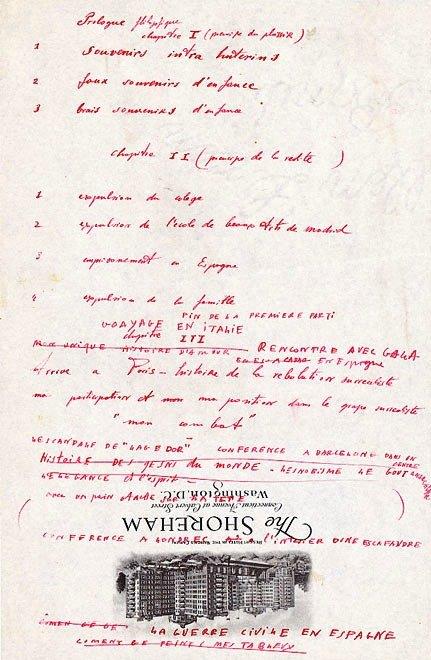 Prologue filosofique
chapitre I (principe du plaisir)
1 Souvenirs intra huterins
2 faux souvenirs d'enfance
3 brais souvenirs d'enfance
chapitre II (principe de la realité)
1 expulsion du colege
2 expulsion de l'ecole de beaux Arts de madrid
3 emprisonement en Espagne
4 expulsion de la famille
FIN DE LA PREMIERE PARTI
VOAYAGE EN ITALIE
chapitre III
MON UNIQUE HISTOIRE D'AMOUR RENCONTRE AVEC GALA
EN Espagne
Arrive a Paris - histoire de la rebolution surrealiste
ma participation et mon ma position dans le grupe surrealiste
"mon combat"
LE SCANDALE DE "LAGE DOR" CONFERENCE A BARCELONE DANS UN CENTRE
Histoire DES JESNS du MONDE - LE SNOBISME LE GOUT
L'ELEGANCE et l'esprit -
(avec un pain Atache SUR LA TETE)
Washington, D.C.
Connecticut Avenue at Calvert Street
The SHOREHAM
CONFERENCE A LONDRES A L'INTERIER DUNE ESCAFANDRE
COMEN GE GE LA GUERRE CIVILE EN ESPAGNE
COMENT GE PEINE MES TABLEUX